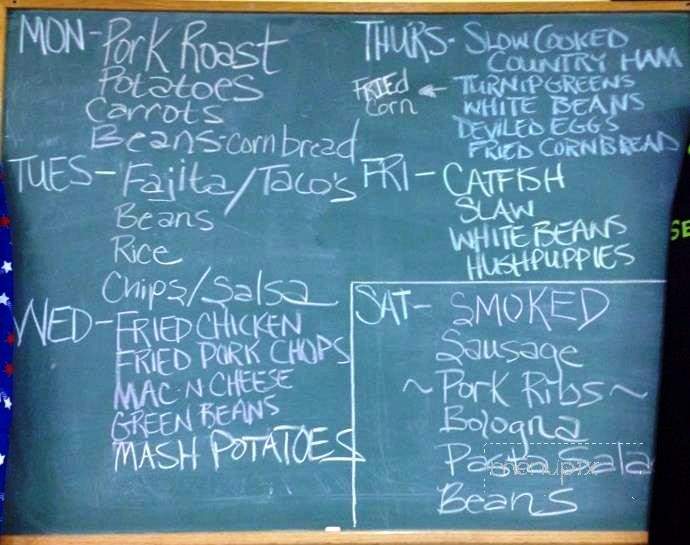 MON- Pork Roast
Potatoes
Carrots
Beans-cornbread
TUES- Fajita/Taco's
Beans
Rice
Chips/Salsa
WED- FRIED CHICKEN
FRIED PORK CHOPS
MAC-N CHEESE
GREEN BEANS
MASH POTATOES
THURS- SLOW COOKED
COUNTRY HAM
FRIEd Corn ← TURNIP GREENS
WHITE BEANS
DEVILED EGGS
FRIED CORNBREAD
FRI- CATFISH
SLAW
WHITE BEANS
HUSHPUPPIES
SAT- SMOKED
Sausage
~Pork Ribs~
Bologna
Pasta Sala
Beans
menupix
SE